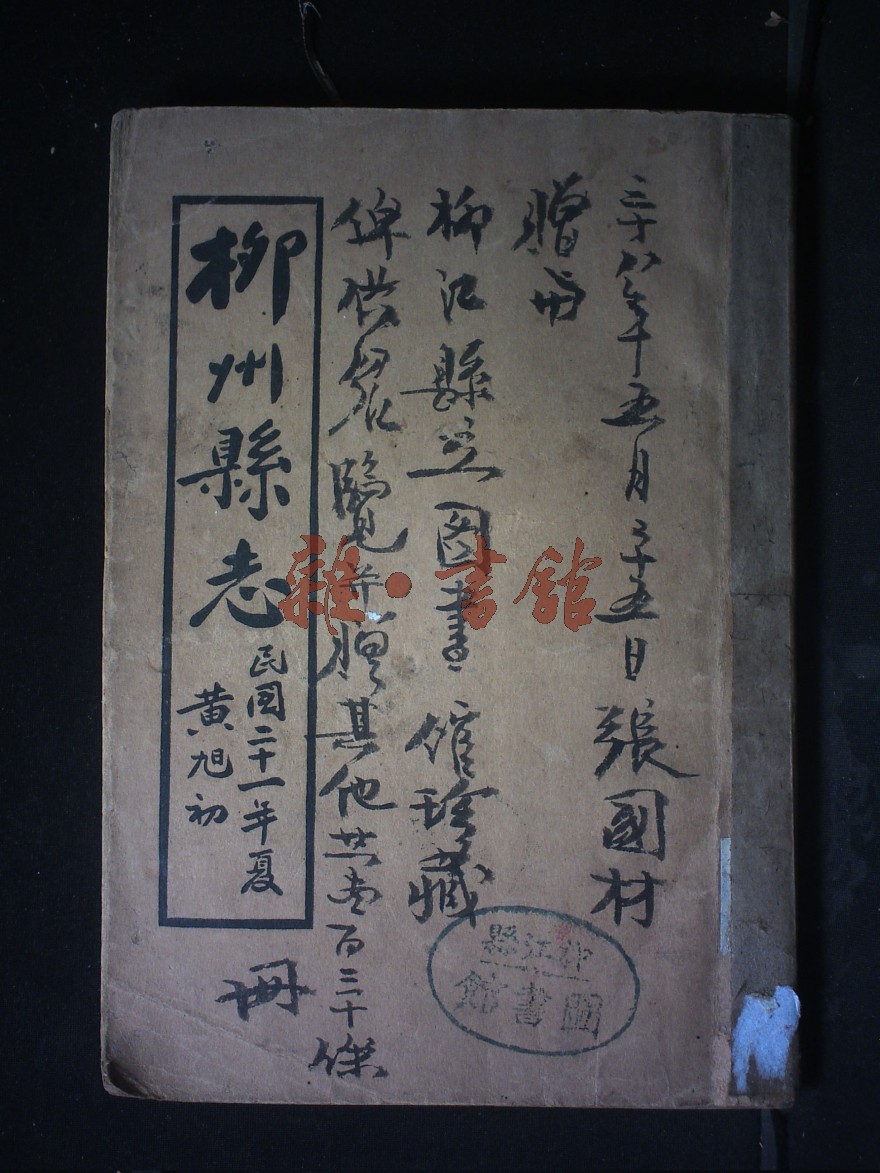 三十八年十五月二十五日張國材
贈與
柳江縣立圖書館珍藏
俾供眾覽並贈其他共壹百三十餘
冊
柳州縣志
民國二十一年夏
黃旭初
柳江縣
圖書館
雜·書館